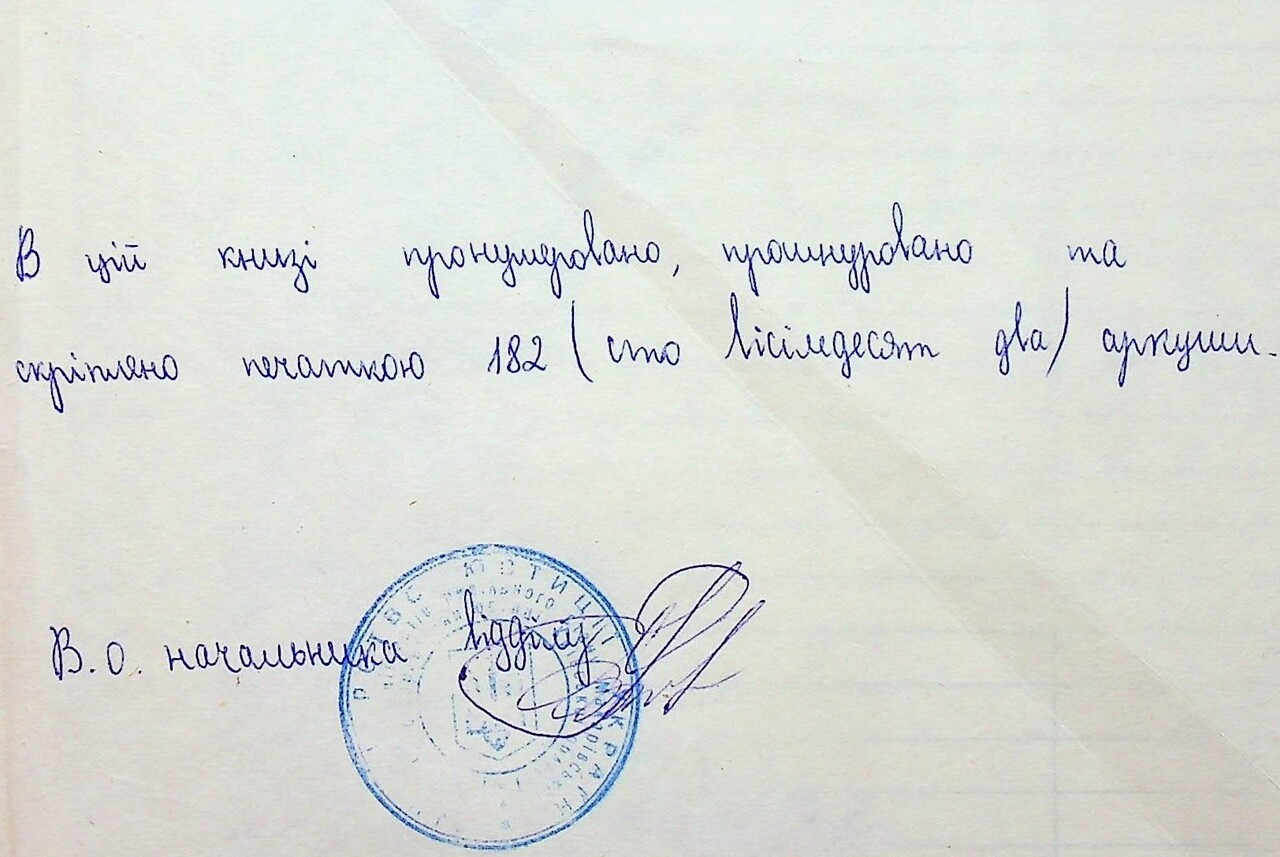 В цій книзі пронумеровано, прошнуровано та
скріплено печаткою 182 (сто вісімдесят два) аркуши.
В.о. начальника відділу
ЮСТИЦІЇ УКРАЇНИ